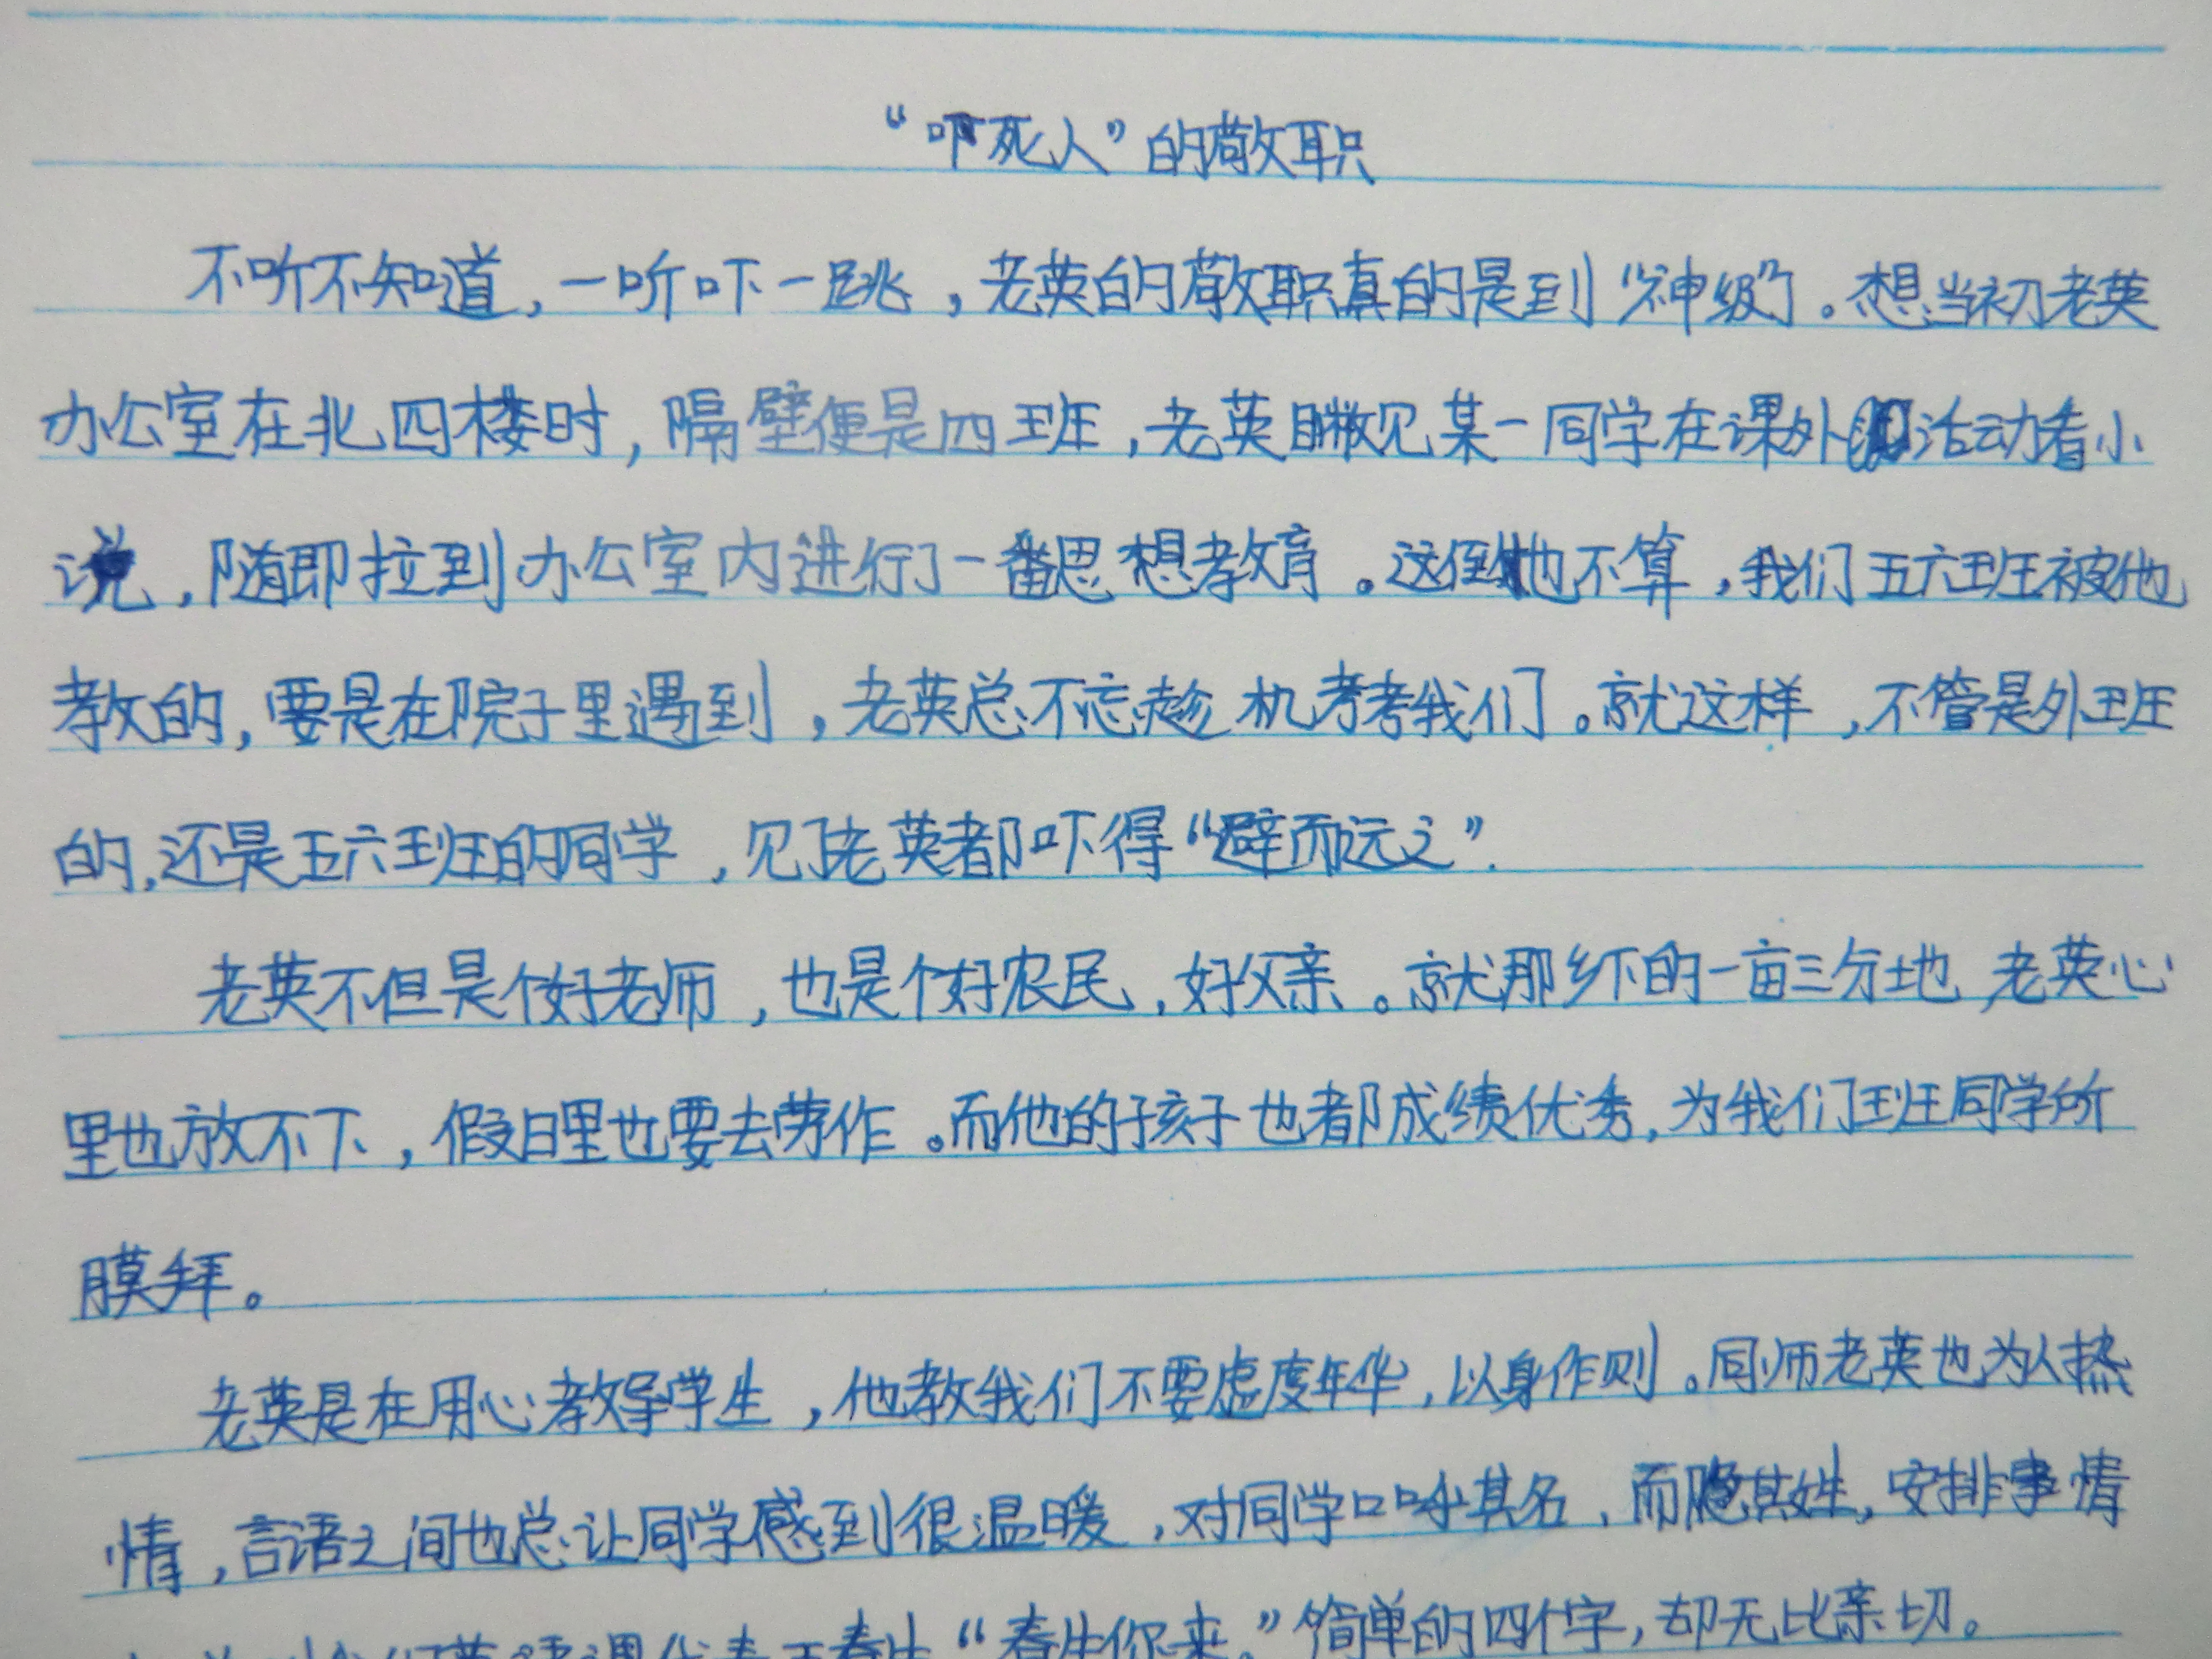 “吓死人”的敬职
不听不知道，一听吓一跳，老英的敬职真的是到“神级”了。想当初老英
办公室在北四楼时，隔壁便是四班，老英瞅见某一同学在课外活动看小
说，随即拉到办公室内进行了一番思想教育。这倒也不算，我们五六班被他
教的，要是在院子里遇到，老英总不忘趁机考考我们。就这样，不管是外班
的，还是五六班的同学，见了老英都吓得“避而远之”.
老英不但是个好老师，也是个好农民，好父亲。就那乡下的一亩三分地，老英心
里也放不下，假日里也要去劳作。而他的孩子也都成绩优秀，为我们班同学所
膜拜。
老英是在用心教导学生，他教我们不要虚度年华，以身作则。同师老英也为人热
情，言语之间也总让同学感到很温暖，对同学口呼其名，而隐其姓，安排事情
“春生你来。”简单的四个字，却无比亲切。